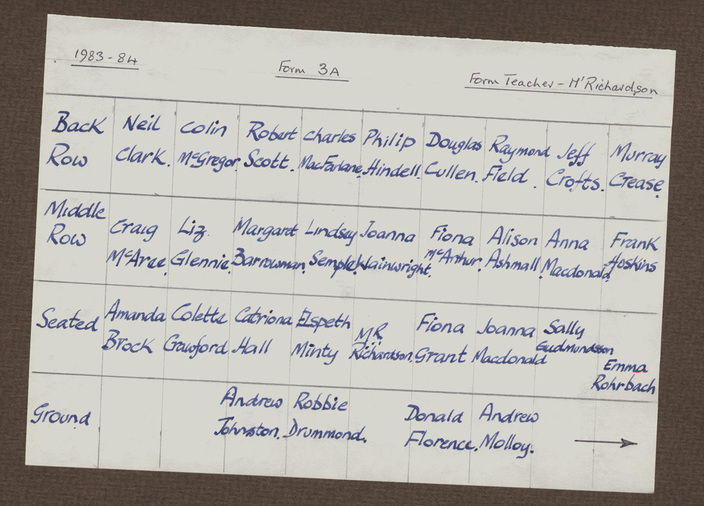 1983-84 Form 3A Form Teacher - Mr Richardson
Back Neil Colin Robert Charles Philip Douglas Raymond Jeff Murray
Row Clark. McGregor. Scott. MacFarlane. Hindell. Cullen. Field. Crofts. Crease.
Middle Craig Liz Margaret Lindsey Joanna Fiona Alison Anna Frank
Row McAree. Glennie. Barrowman. Semple. Wainwright. McArthur. Ashmall. Macdonald. Hoskins
Seated Amanda Colette Catriona Elspeth MR Fiona Joanna Sally
Brock Crawford Hall Minty Richardson. Grant Macdonald Gudmundsson
Emma
Rohrbach
Ground Andrew Robbie Donald Andrew
Johnston. Drummond. Florence. Molloy. →